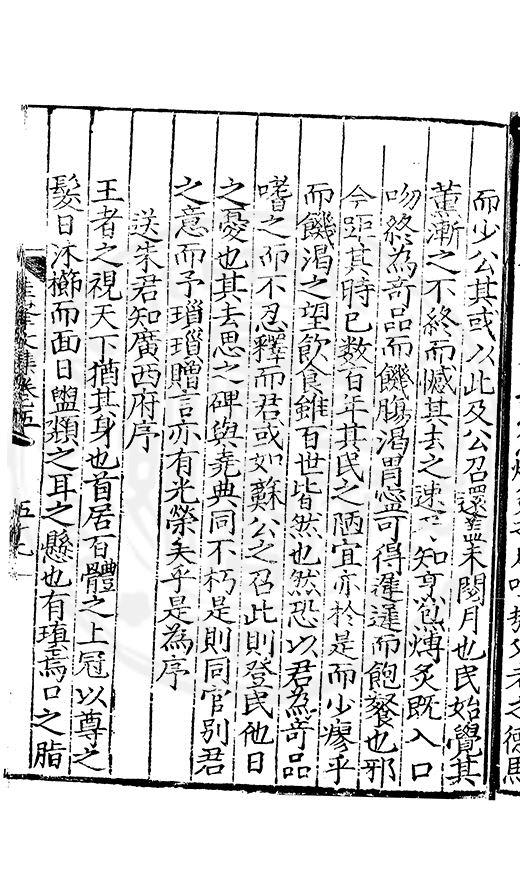 而少公其或以此及公召還蓋未閱月也民始覺其
薰漸之不終而憾其去之速不知烹炰煿炙既入口
吻終為奇品而饑腸渴胃寧可得遽遽而飽餐也邪
今距其時已数百年其民之陋宜亦於是而少廖乎
而饑渴之望飲食雖百世皆然也然恐以君為奇品
嗜之而不忍釋而君或如蘇公之召此則登民他日
之憂也其去思之碑與堯典同不朽是則同官別君
之意而予瑣瑣贈言亦有光榮矣乎是為序
送朱君知廣西府序
王者之視天下猶其身也首居百體之上冠以尊之
髮日沐櫛而面日盥頮之耳之懸也有瑱焉口之脂
文集卷五